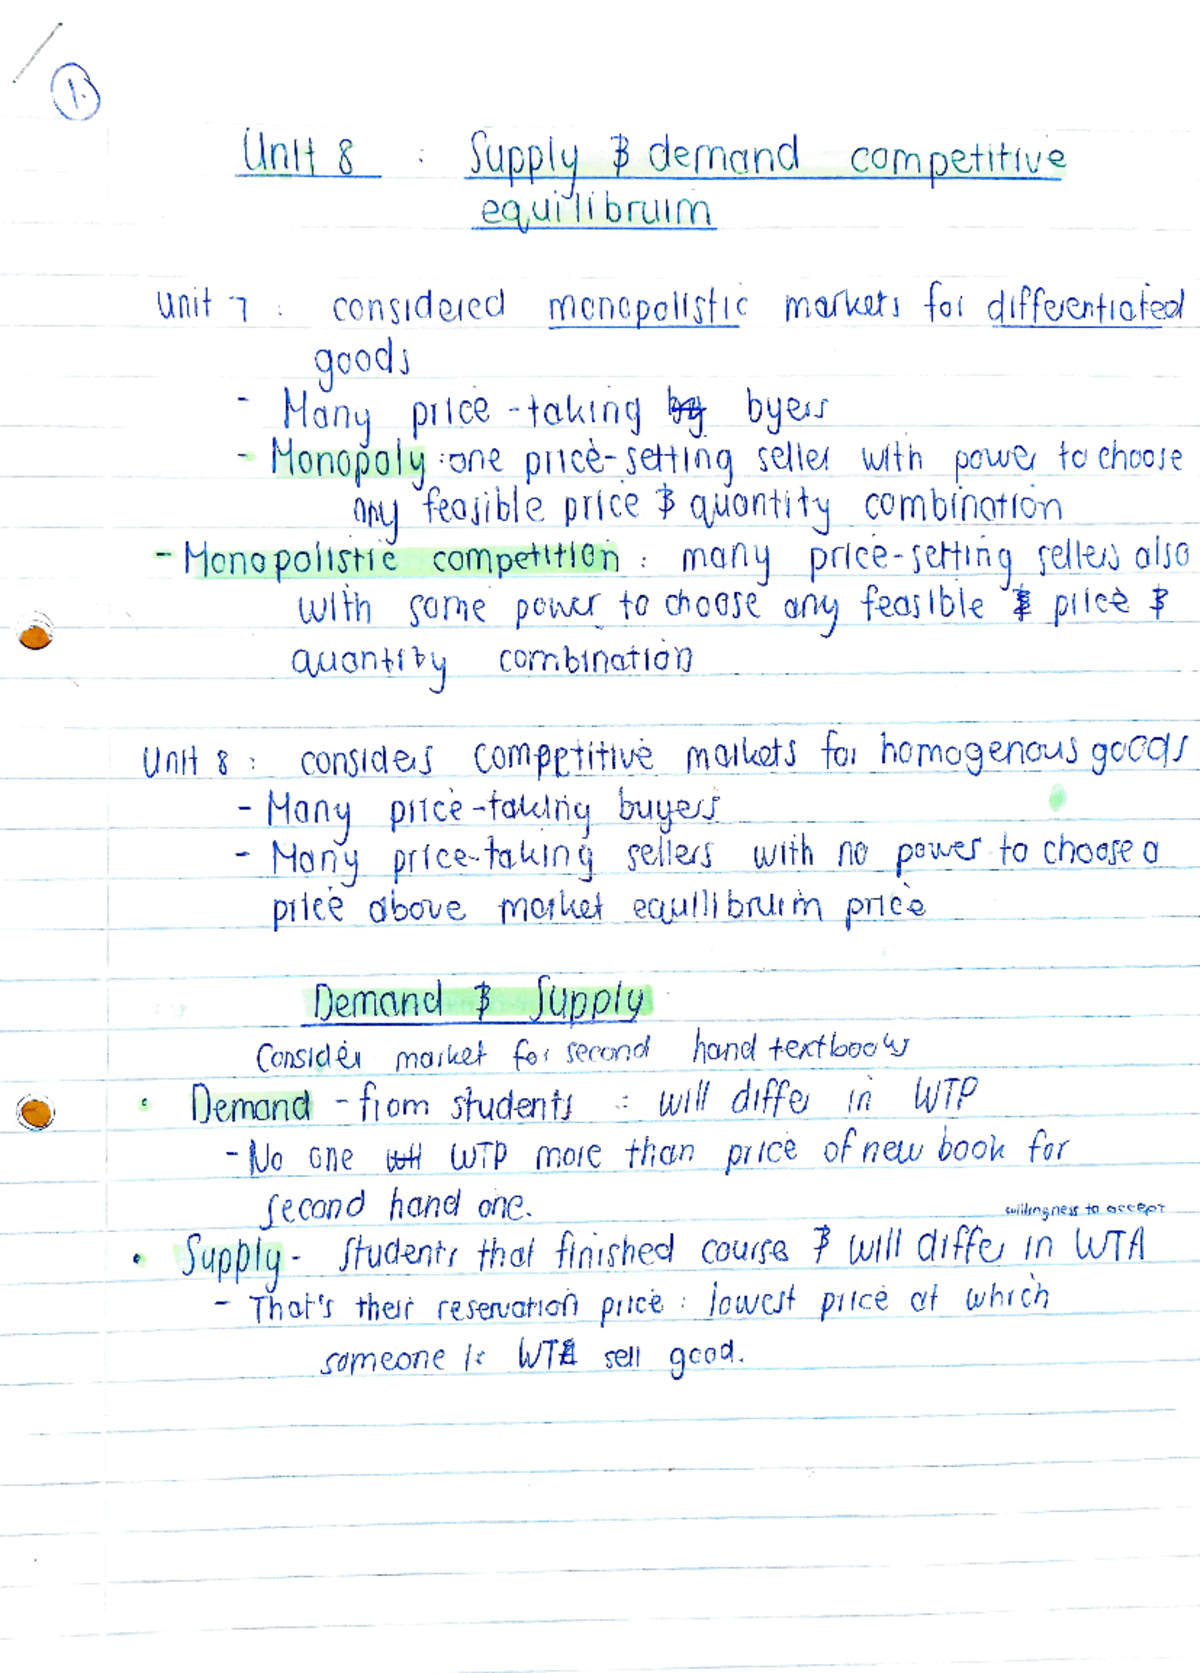 1.
Unit 8 : Supply & demand competitive
equilibruim
Unit 7 : considered monopolistic markets for differentiated
goods
- Many price-taking byers
- Monopoly : one price-setting seller with power to choose
any feasible price & quantity combination
- Monopolistic competition : many price-setting sellers also
with some power to choose any feasible price &
quantity combination
Unit 8 : considers competitive markets for homogenous goods
- Many price-taking buyers
- Many price-taking sellers with no power to choose a
price above market equilibruim price
Demand & Supply
Consider market for second hand textbooks
• Demand - from students : will differ in WTP
- No one WTP more than price of new book for
second hand one.
willingness to accept
• Supply - Students that finished course & will differ in WTA
- That's their reservation price : lowest price at which
someone is WTA sell good.